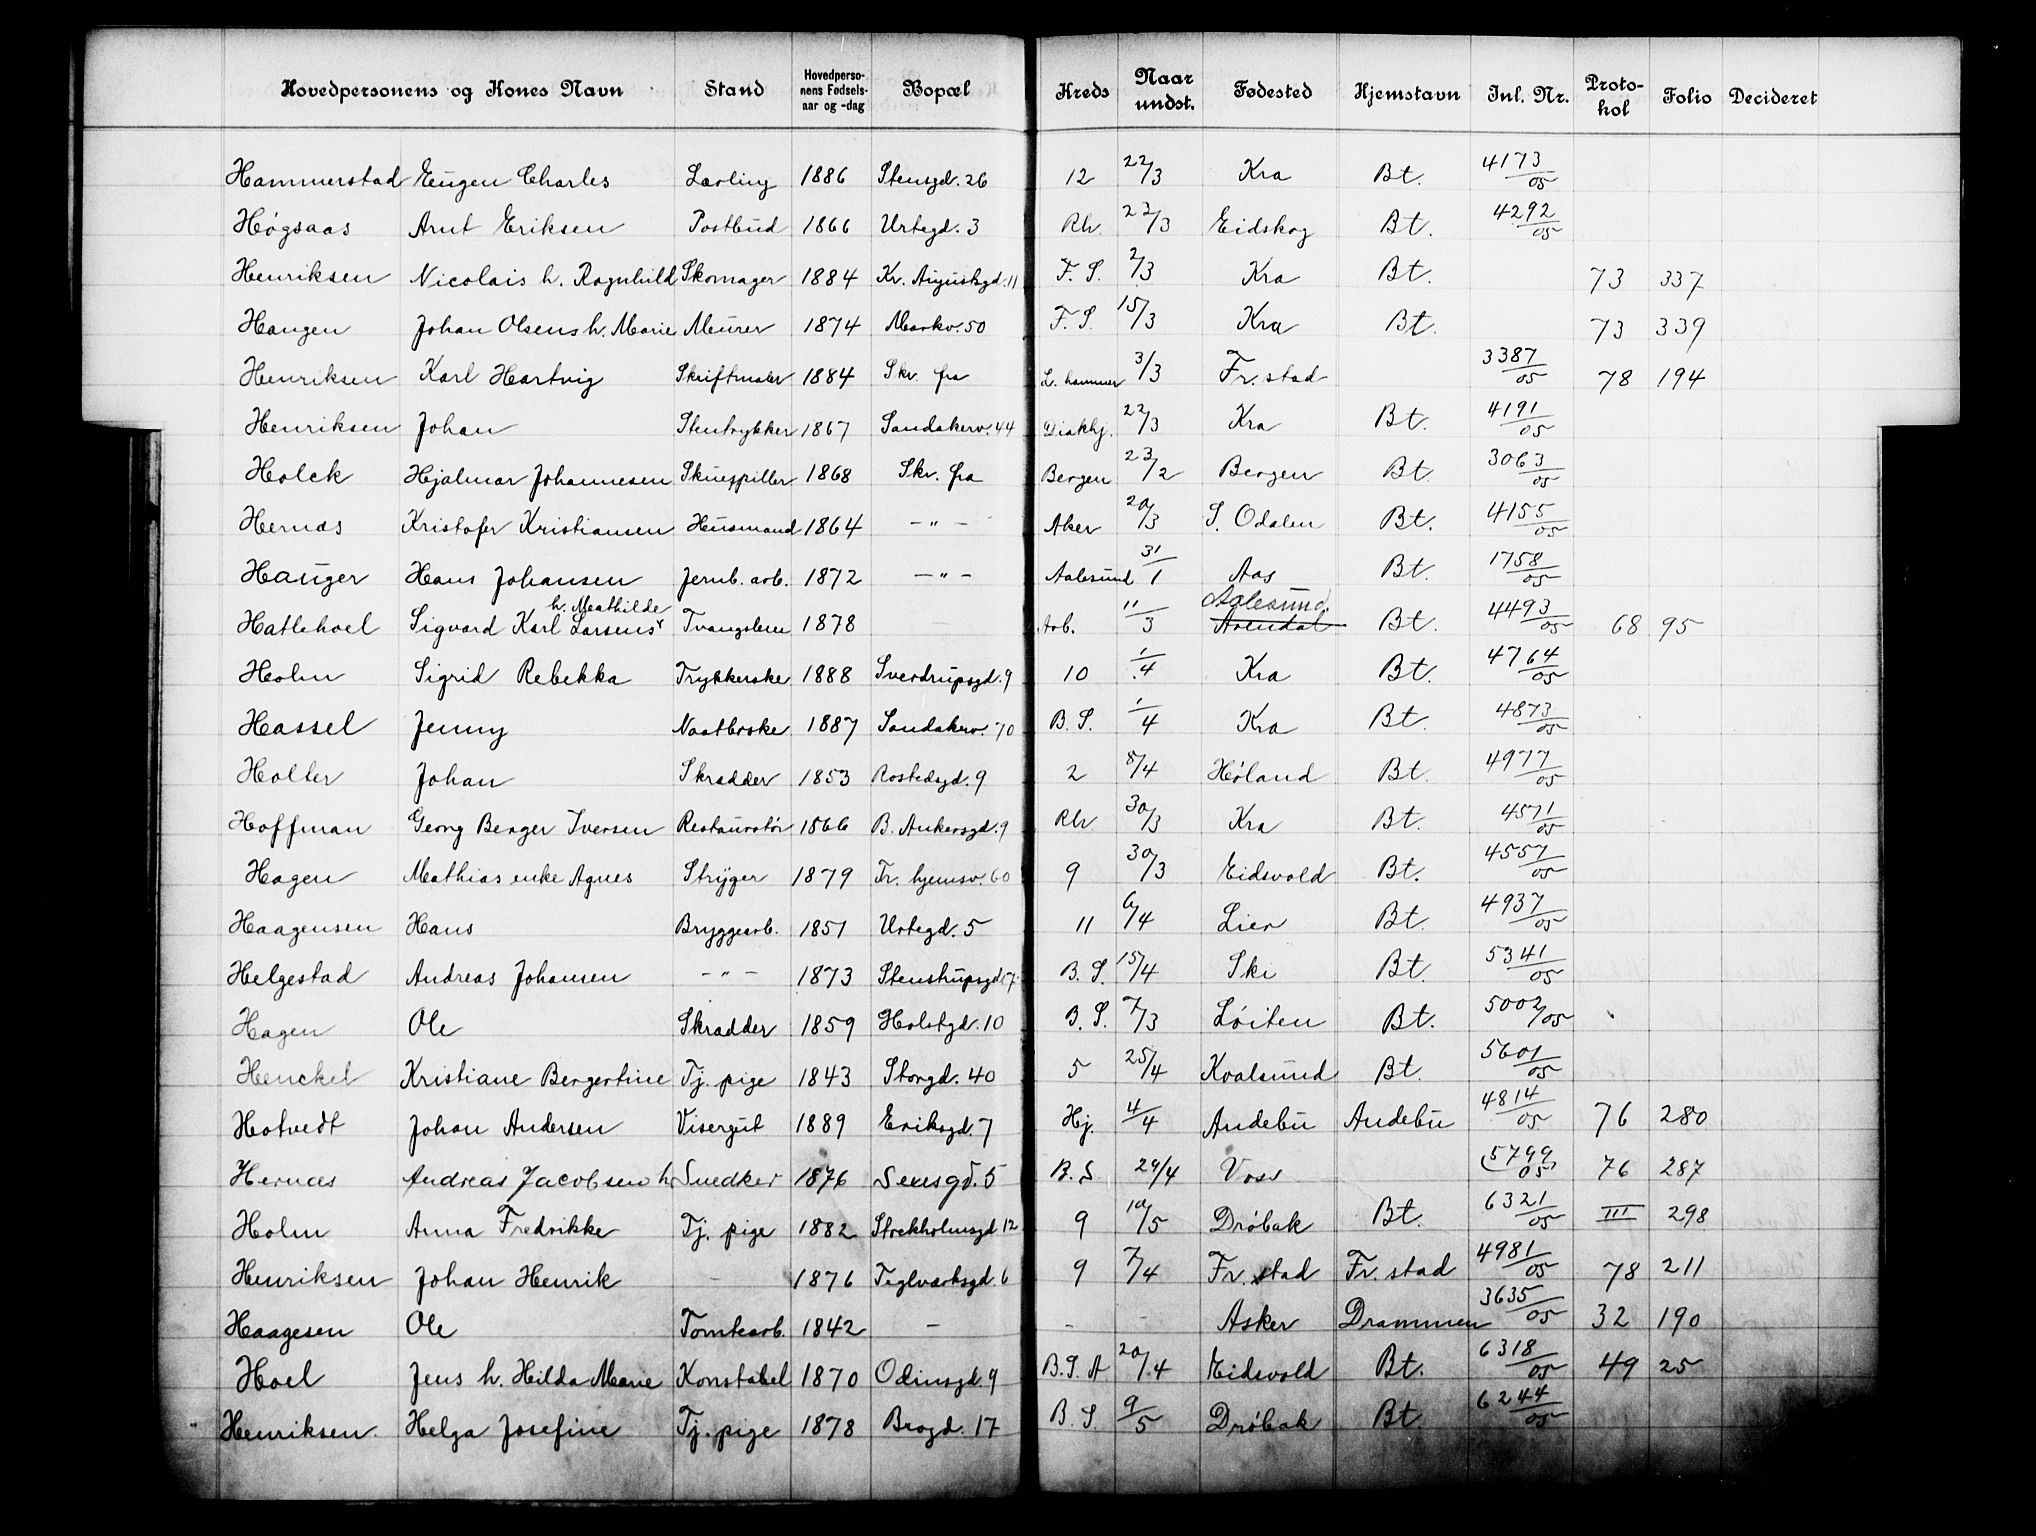 Hovedpersonens og Kones Navn Stand Hovedpersonens Fødselsaar og -dag Bopæl Kreds Naar undst. Fødested Hjemstavn Inl. Nr. Protokol Folio Decideret
Hammerstad Eugen Charles Lærling 1886 Stensgd. 26 12 22/3 Kra Bt. 4173/05
Høgsaas Arnt Eriksen Postbud 1866 Urtegd. 3 Rh. 22/3 Eidskog Bt. 4292/05
Henriksen Nicolais h. Ragnhild Skomager 1884 Kr. Augustsgd. 11 F. S. 2/3 Kra Bt. 73 337
Haugen Johan Olsens h. Marie Murer 1874 Markv. 50 F. S. 15/3 Kra Bt. 73 339
Henriksen Karl Hartvig Skriftmaler 1884 Skr. fra L. hammer 3/3 Fr. stad 3387/05 78 194
Henriksen Johan Stentrykker 1867 Sandakerv. 44 Diakhj. 22/3 Kra Bt. 4191/05
Holck Hjalmar Johannesen Skuespiller 1868 Skr. fra Bergen 23/2 Bergen Bt. 3063/05
Hernæs Kristofer Kristiansen Husmand 1864 - " - Aker 20/3 S. Odalen Bt. 4155/05
Hauger Hans Johansen Jernb. arb. 1872 - " - Aalesund 31/1 Aas Bt. 1758/05
h. Mathilde Aalesund.
Hatlehoel Sigvard Karl Larsens Tvangslem 1878 Arb. 11/3 Arendal Bt. 4493/05 68 95
Holm Sigrid Rebekka Trykkerske 1888 Sverdrupsgd. 9 10 1/4 Kra Bt. 4764/05
Hassel Jenny Naatlerske 1887 Sandakerv. 70 B. S. 1/4 Kra Bt. 4873/05
Holter Johan Skrædder 1853 Rostedsgd. 9 2 8/4 Høland Bt. 4977/05
Hoffman Georg Berger Iversen Restauratør 1866 B. Ankersgd. 9 Rh 30/3 Kra Bt. 4571/05
Hagen Mathias enke Agnes Stryger 1879 Tr. hjemsv. 60 9 30/3 Eidsvold Bt. 4557/05
Haagensen Hans Bryggearb. 1851 Urtegd. 5 11 6/4 Lier Bt. 4937/05
Helgestad Andreas Johansen - " - 1873 Stenstrupsgd. 7 B. S. 15/4 Ski Bt. 5341/05
Hagen Ole Skrædder 1859 Holstgd. 10 B. S. 7/3 Løiten Bt. 5002/05
Henckel Kristiane Bergertine Tj. pige 1843 Storgd. 40 5 25/4 Kvalsund Bt. 5601/05
Hotvedt Johan Andersen Visergut 1889 Eriksgd. 7 Hj. 4/4 Andebu Andebu 4814/05 76 280
Hernæs Andreas Jacobsen h Snedker 1876 Sexesgd. 5 B. S. 29/4 Voss 5799/05 76 287
Holm Anna Fredrikke Tj. pige 1882 Stockholmsgd 12 9 10/5 Drøbak Bt. 6321/05 III 298
Henriksen Johan Henrik - 1876 Teglværksgd. 6 9 7/4 Fr. stad Fr. stad 4981/05 78 211
Haagesen Ole Tomtearb. 1842 - - - Asker Drammen 3635/05 32 190
Hoel Jens h. Hilda Marie Konstabel 1870 Odinsgd. 9 B. S. A. 20/4 Eidsvold Bt. 6318/05 49 25
Henriksen Helga Josefine Tj. pige 1878 Brogd. 17 B. S. 9/5 Drøbak Bt 6244/05